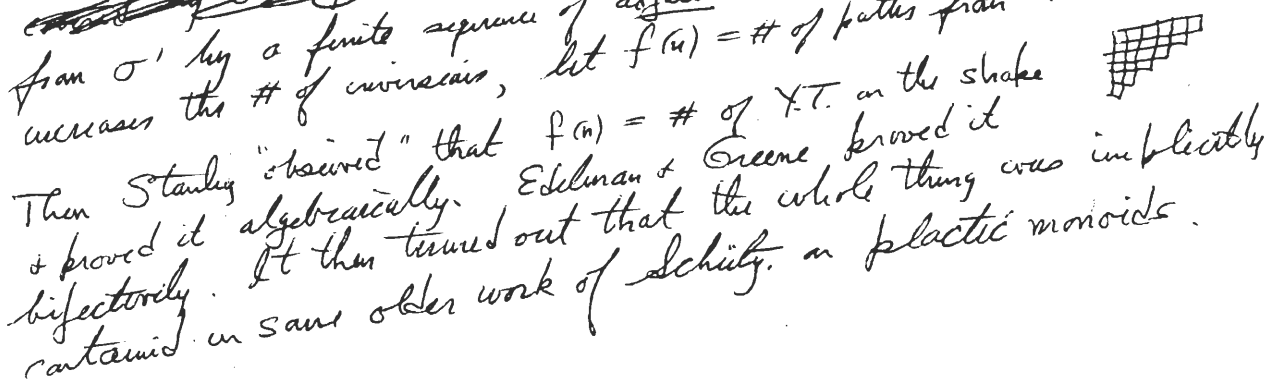 from σ' by a finite sequence of
increases the # of inversions, let f(n) = # of paths from
Then Stanley "observed" that f(n) = # of Y.T. on the shape
& proved it algebraically. Edelman & Greene proved it
bijectively. It then turned out that the whole thing was implicitly
contained in some older work of Schütz. on plactic monoids.